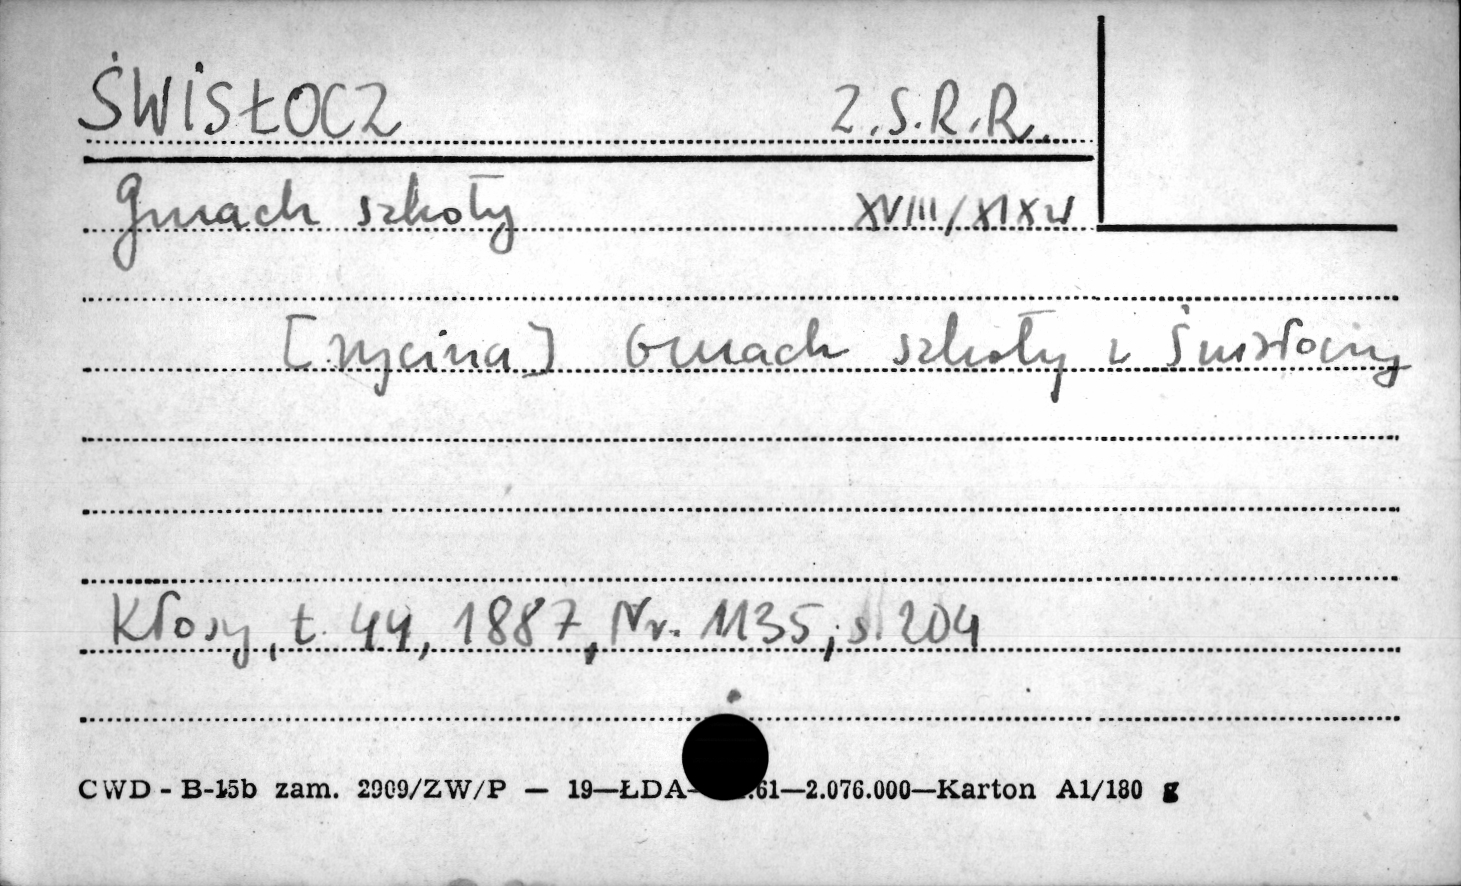 ŚWISŁOCZ Z.S.R.R.
Gmach szkoły XVIII/XIX w
[rycina] Gmach szkoły z Świsłoczy
Kłosy, t. 44, 1887, Nr. 1135, s. 204
CWD - B-15b zam. 2909/ZW/P — 19—ŁDA- .61—2.076.000—Karton A1/180 g